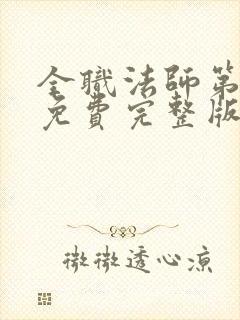 全職法師第
免費完整版
微微透心凉